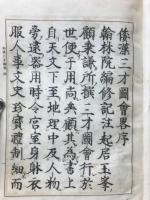 倭漢三才圖會畧序
翰林院編修記注起居玉峯
顧秉謙所撰三才圖會行於
世便于用尚矣顧其爲書上
自天文下至地理中及人物
旁逮器用時令宮室身衣
服人事文史珍寶體制細而